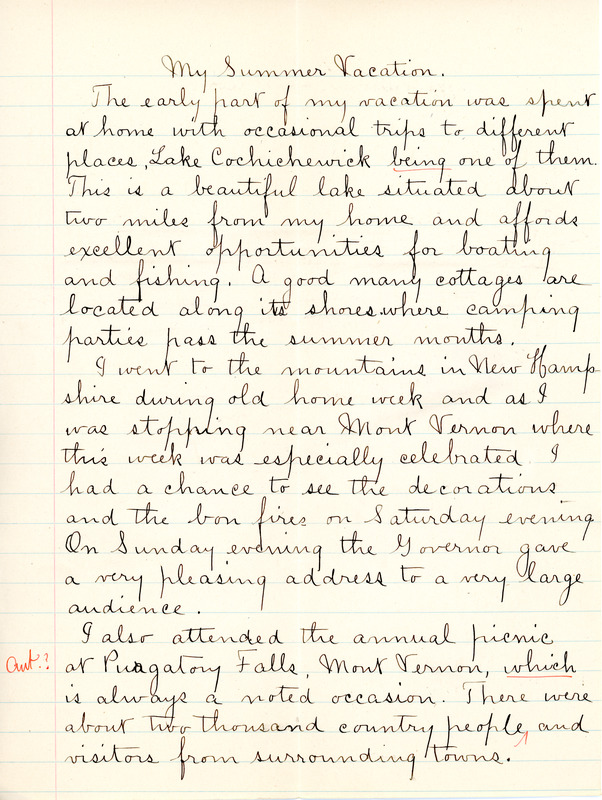 My Summer Vacation.
The early part of my vacation was spent
at home with occasional trips to different
places, Lake Cochichewick being one of them.
This is a beautiful lake situated about
two miles from my home and affords
excellent opportunities for boating
and fishing. A good many cottages are
located along its shores where camping
parties pass the summer months.
I went to the mountains in New Hamp
shire during old home week and as I
was stopping near Mont Vernon where
this week was especially celebrated I
had a chance to see the decorations
and the bon fires on Saturday evening
On Sunday evening the Governor gave
a very pleasing address to a very large
audience.
I also attended the annual picnic
Ant.? at Purgatory Falls, Mont Vernon, which
is always a noted occasion. There were
about two thousand country people, and
visitors from surrounding towns.